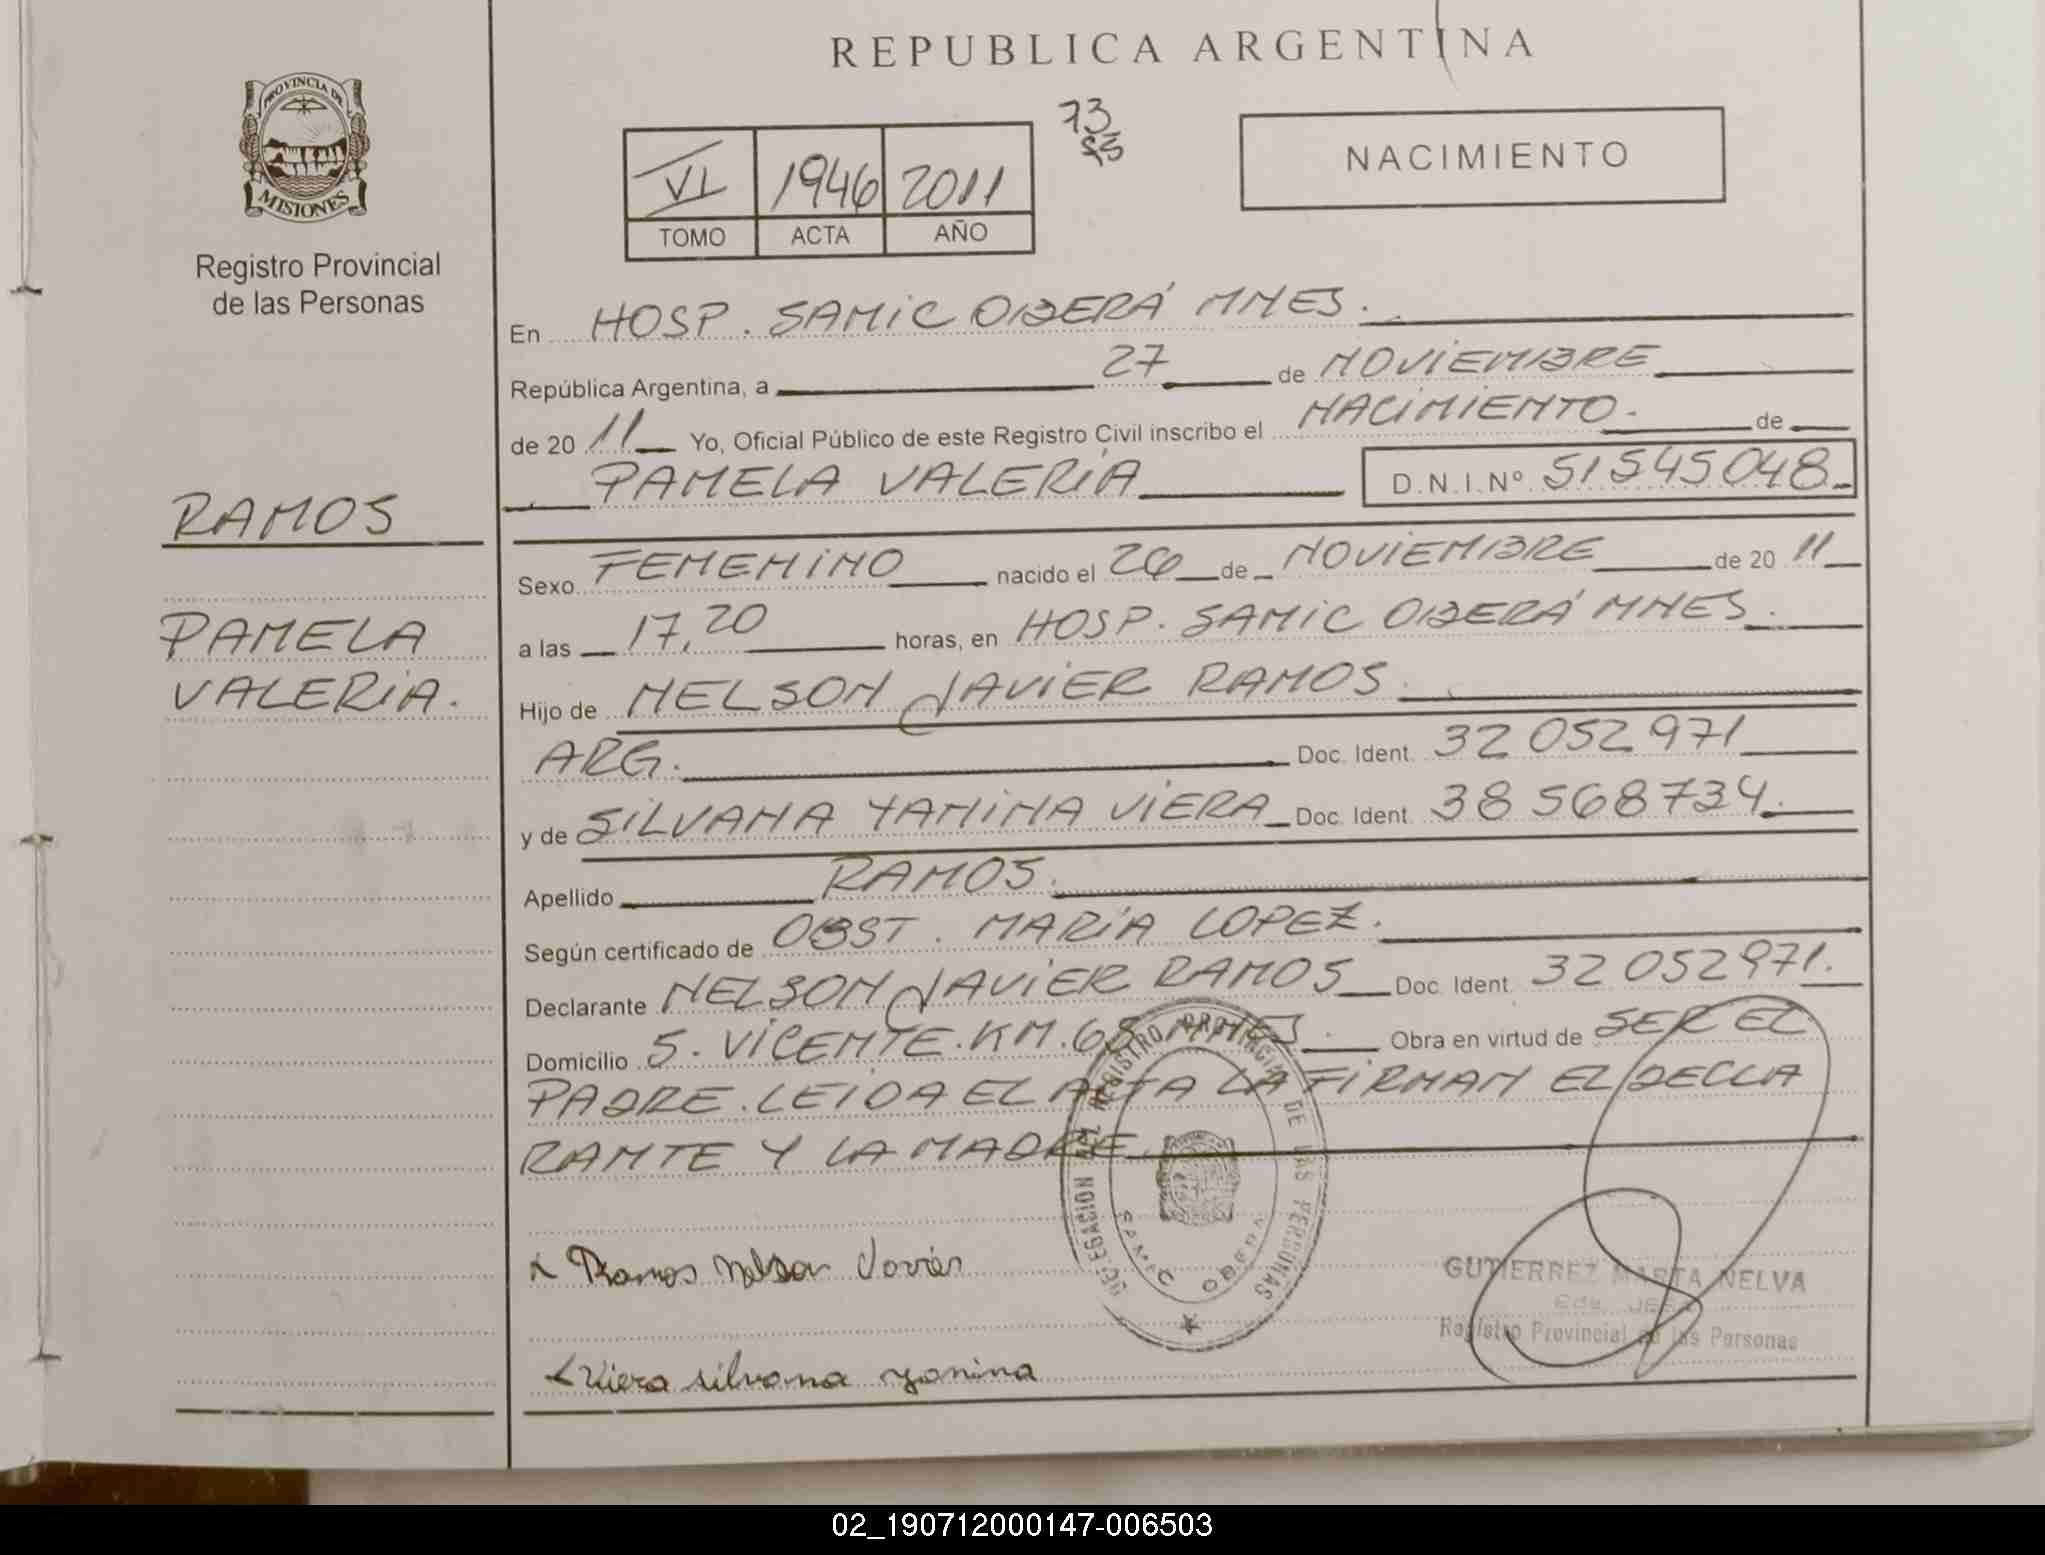 REPUBLICA ARGENTINA
PROVINCIA DE
MISIONES
Registro Provincial
de las Personas
VI 1946 2011
TOMO ACTA AÑO
73
NACIMIENTO
En HOSP. SAMIC OBERÁ MNES.
República Argentina, a 27 de NOVIEMBRE
de 2011 Yo, Oficial Público de este Registro Civil inscribo el NACIMIENTO. de
PAMELA VALERIA D.N.I.Nº 51545048
RAMOS
PAMELA
VALERIA.
Sexo FEMENINO nacido el 26 de NOVIEMBRE de 2011
a las 17,20 horas, en HOSP. SAMIC OBERÁ MNES.
Hijo de NELSON JAVIER RAMOS.
ARG. Doc. Ident. 32 052 971
y de SILVANA YANINA VIERA Doc. Ident. 38 568 734.
Apellido RAMOS.
Según certificado de OBST. MARIA LOPEZ.
Declarante NELSON JAVIER RAMOS Doc. Ident. 32 052 971.
Domicilio S. VICENTE. KM. 68 MNES. Obra en virtud de SER EL
PADRE. LEIDA EL ACTA LA FIRMAN EL DECLA
RANTE Y LA MADRE.
DELEGACION DEL REGISTRO PROVINCIAL DE LAS PERSONAS
SAMIC OBERA
Ramos Nelson Javier
Viera silvana yanina
GUTIERREZ MARTA NELVA
Registro Provincial de las Personas
02_190712000147-006503